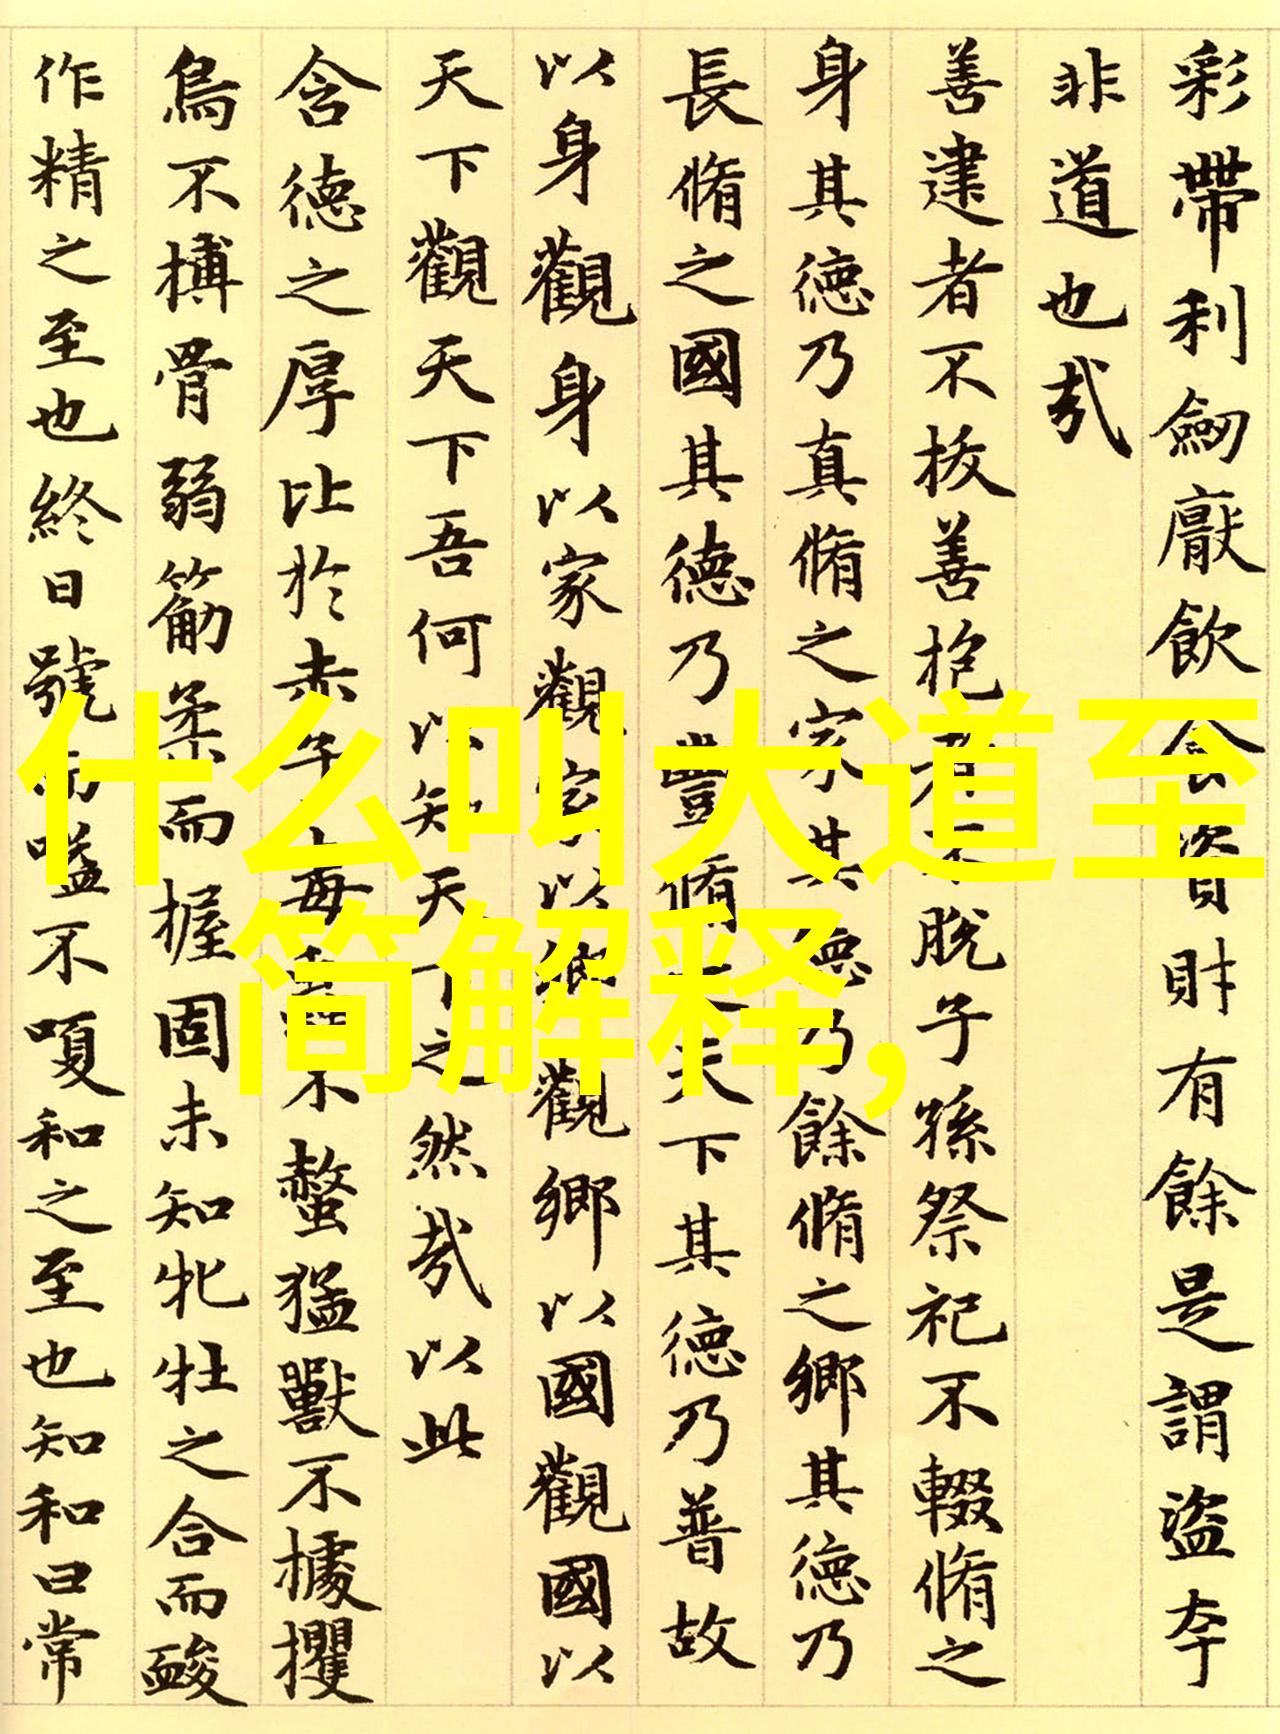 彩帶利劒厭飲食資財有餘是謂盜夸
非道也哉
善建者不拔善抱者不脫子孫祭祀不輟脩之
身其德乃真脩之家其德乃餘脩之鄉其德乃
長脩之國其德乃豐脩之天下其德乃普故
以身觀身以家觀家以鄉觀鄉以國觀國以
天下觀天下吾何以知天下之然哉以此
含德之厚比於赤子毒蟲不螫猛獸不據攫
鳥不搏骨弱筋柔而握固未知牝牡之合而䘒
作精之至也終日號而嗌不嗄和之至也知和曰常
什么叫大道至
简解释,